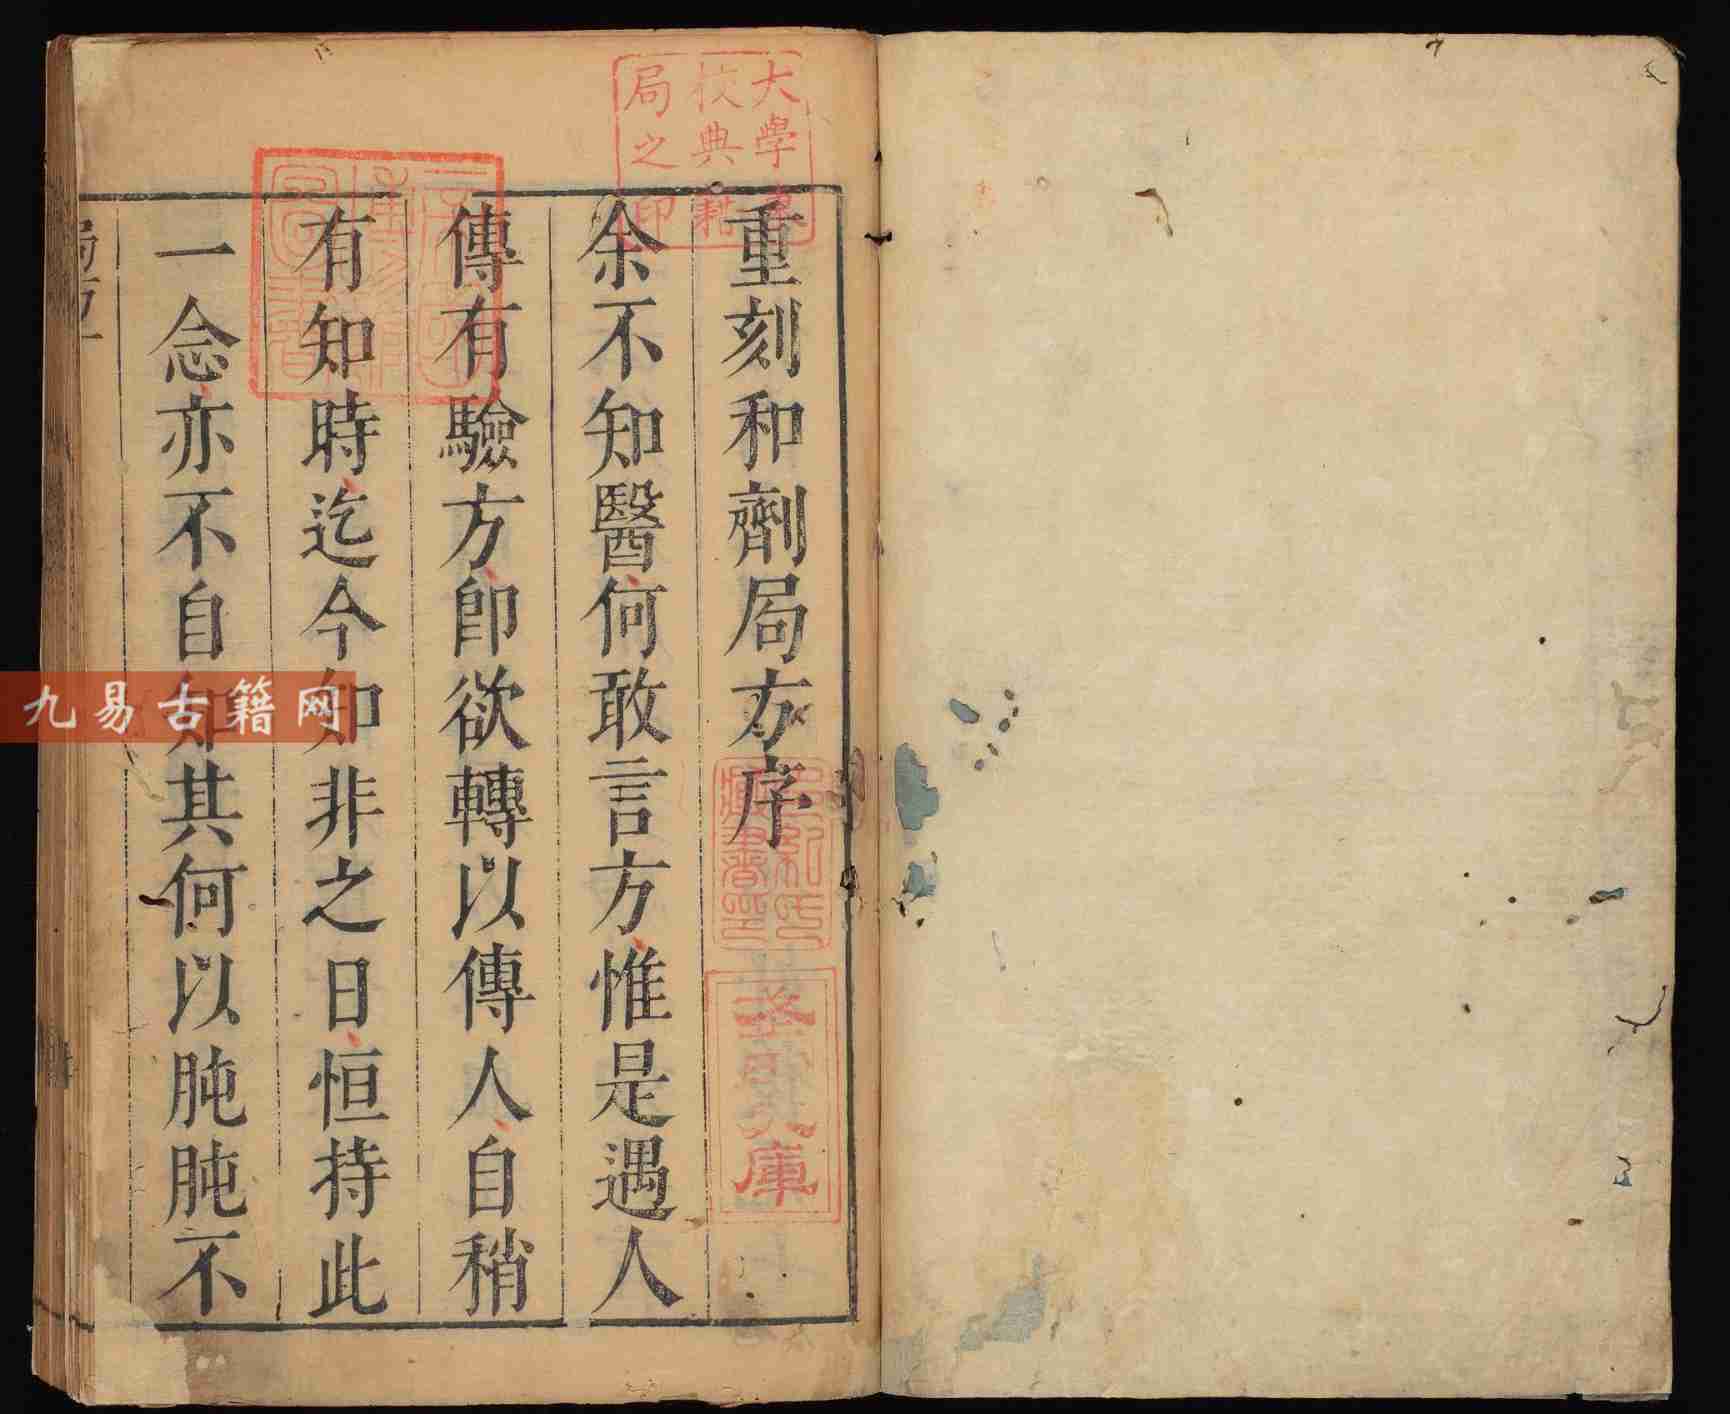 重刻和劑局方序
余不知醫何敢言方惟是遇人
傳有驗方卽欲轉以傳人自稍
有知時迄今知非之日恒持此
一念亦不自知其何以肫肫不
大學東
校典籍
局之印
庫
九易古籍网